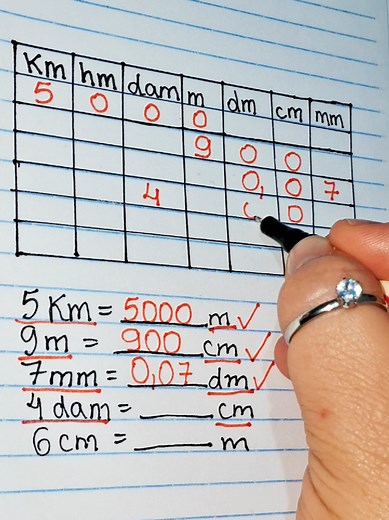 Km hm dam m dm cm mm
5 0 0 0
9 0 0
0, 0 7
4 0
5 Km = 5000 m ✓
9 m = 900 cm ✓
7 mm = 0,07 dm ✓
4 dam = ______ cm
6 cm = ______ m